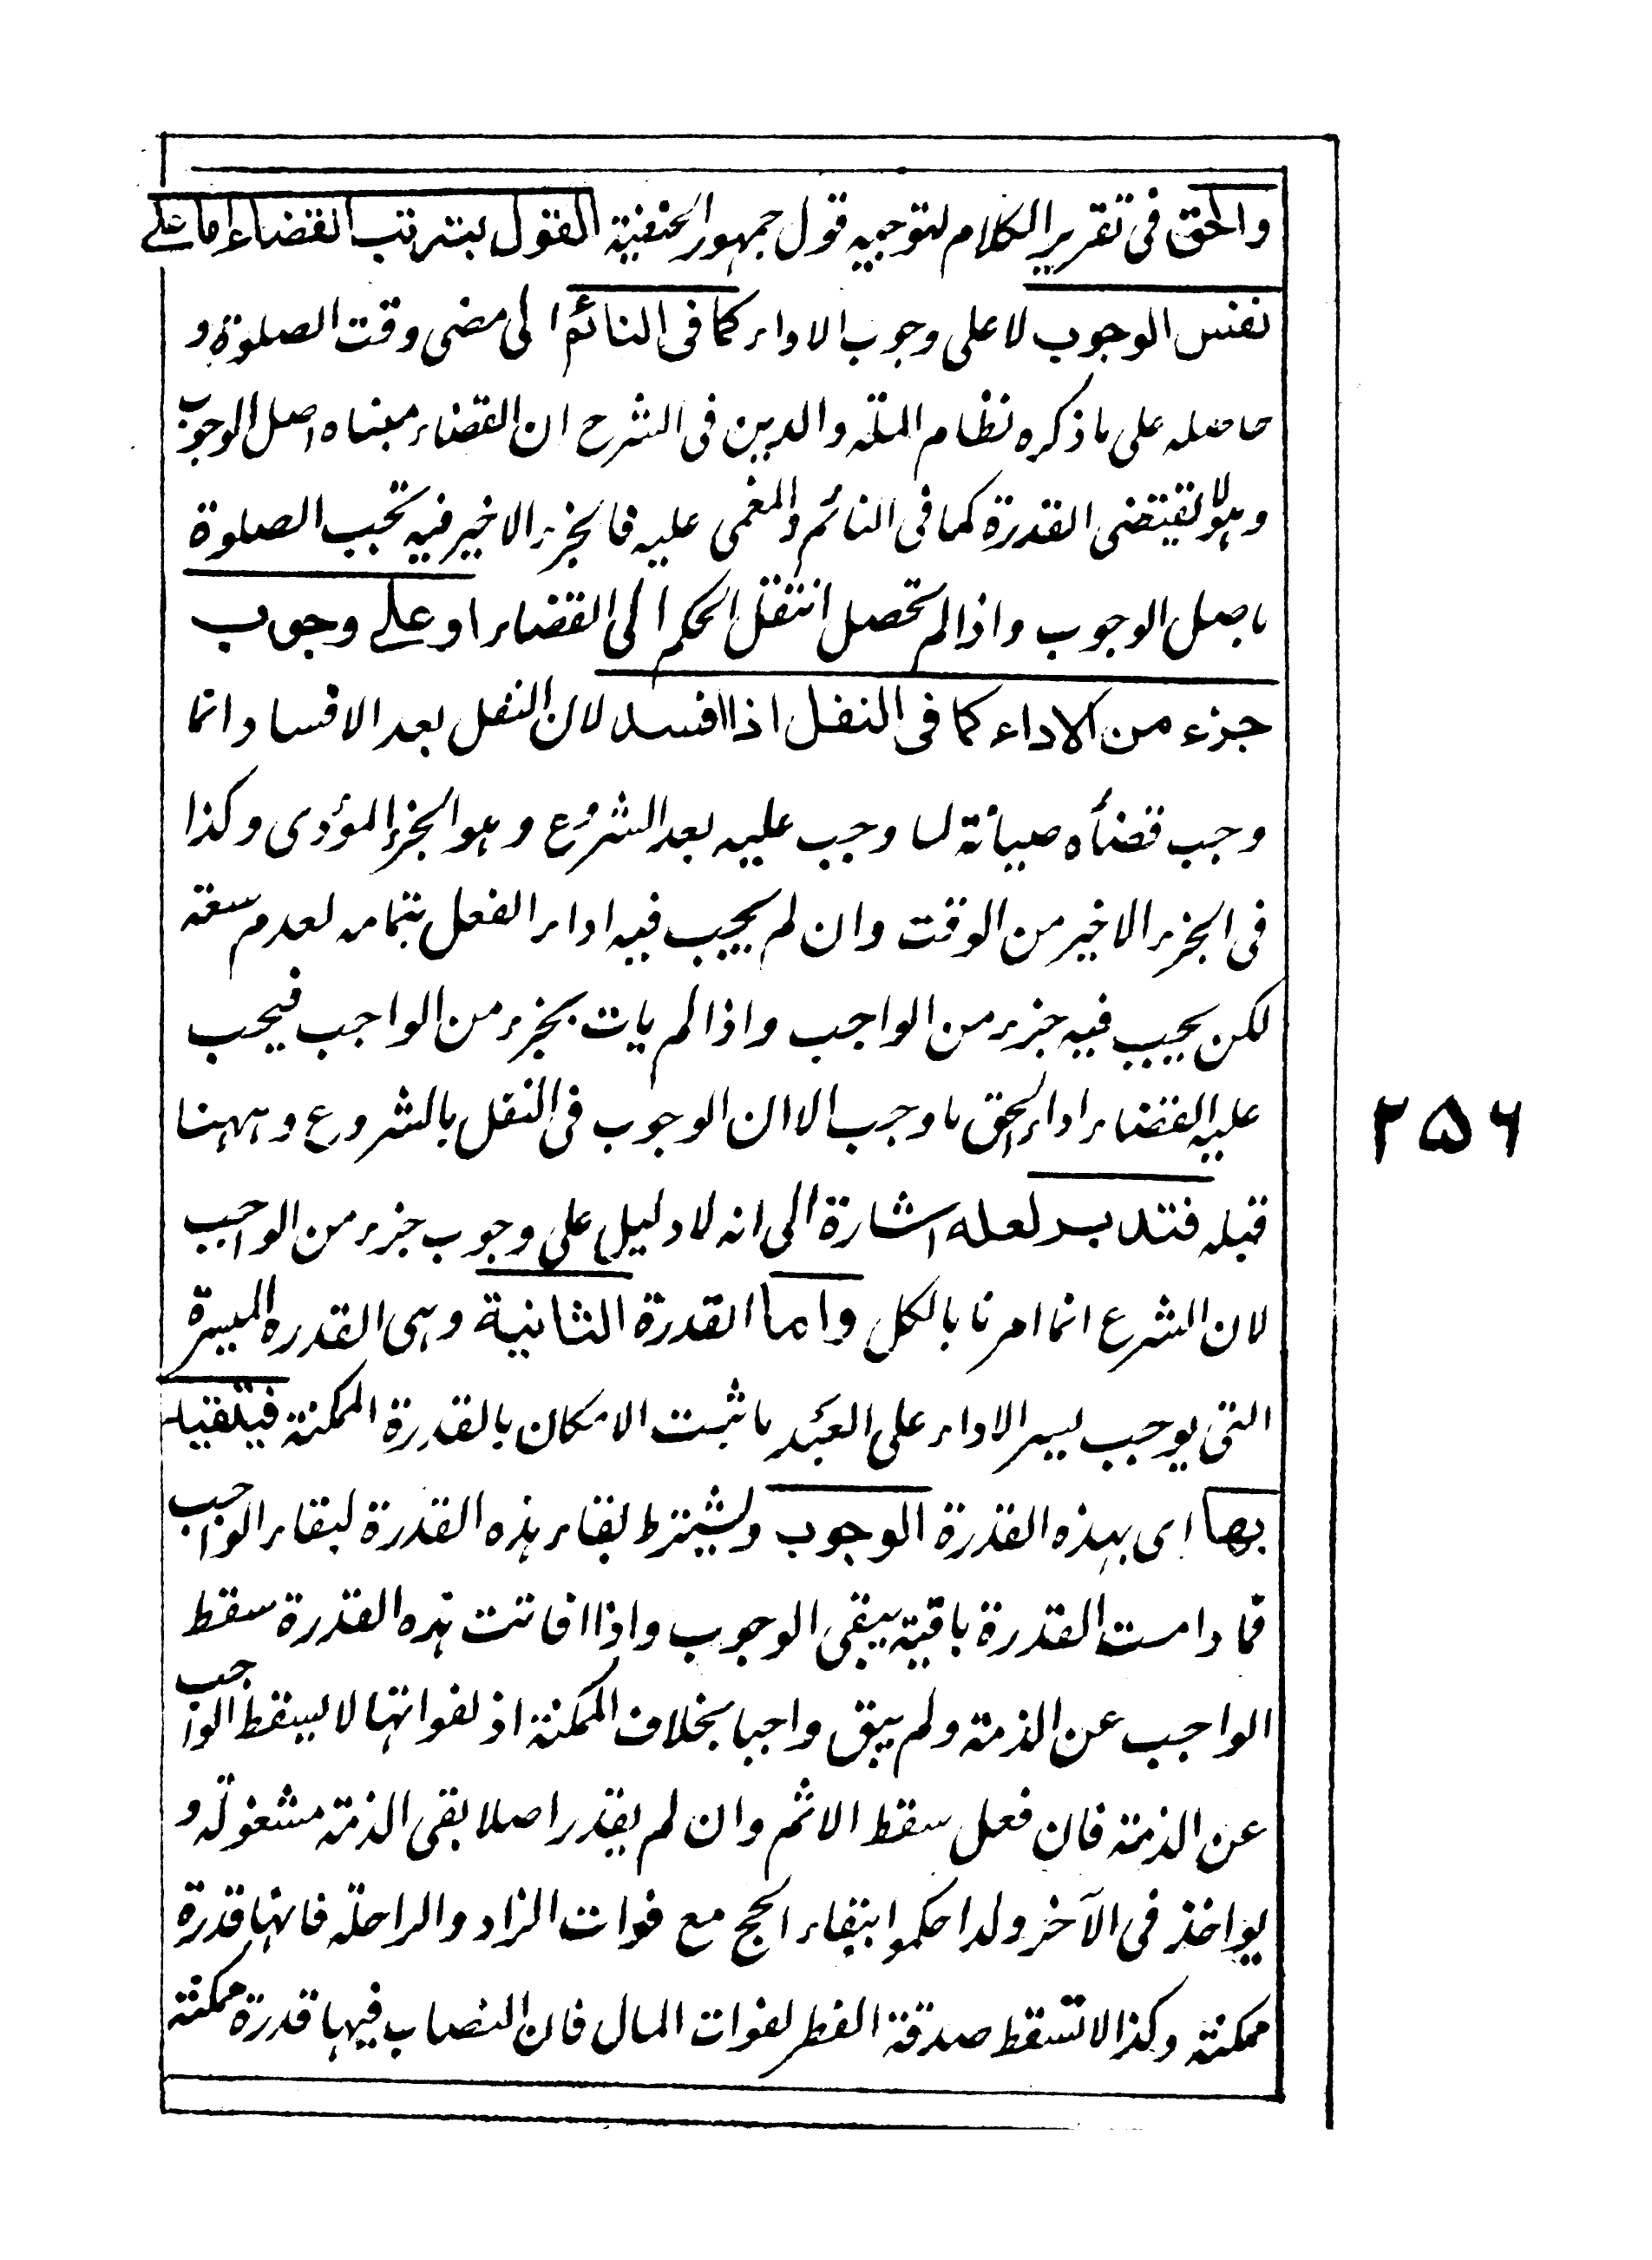 والحق فى تقرير الكلام لتوجيه قول جمهور الحنفية القول بترتب القضاء اما على
نفس الوجوب لا على وجوب الاداء كما فى النائم الى مضى وقت الصلوة و
حاصله على ما ذكره نظام الملة والدين فى الشرح ان القضاء مبناه اصل الوجوب
وهو لا يقتضى القدرة كما فى النائم والمغمى عليه فالجزء الاخير فيه تجب الصلوة
باصل الوجوب واذا لم تحصل انتقل الحكم الى القضاء او على وجوب
جزء من الاداء كما فى النفل اذا افسد لان النفل بعد الافساد انما
وجب قضأه صيانة لما وجب عليه بعد الشروع وهو الجزء المؤدى وكذا
فى الجزء الاخير من الوقت وان لم يجب فيه اداء الفعل بتمامه لعدم سعته
لكن يجب فيه جزء من الواجب واذا لم يات بجزء من الواجب فيجب
عليه القضاء اداء لحق ما وجب الا ان الوجوب فى النفل بالشروع وههنا
قبله فتدبر لعله اشارة الى انه لا دليل على وجوب جزء من الواجب
لان الشرع انما امرنا بالكل واما القدرة الثانية وهى القدرة الميسرة
التى يوجب يسر الاداء على العبد ما ثبت الامكان بالقدرة الممكنة فيتقيد
بها اى بهذه القدرة الوجوب ويشترط بقاء هذه القدرة لبقاء الواجب
فما دامت القدرة باقية يبقى الوجوب واذا فاتت هذه القدرة سقط
الواجب عن الذمة ولم يبق واجبا بخلاف الممكنة اذ لفواتها لا يسقط الواجب
عن الذمة فان فعل سقط الاثم وان لم يقدر اصلا بقى الذمة مشغولة و
يواخذ فى الآخر ولذا حكموا ببقاء الحج مع فوات الزاد والراحلة فانها قدرة
ممكنة وكذا لا تسقط صدقة الفطر لفوات المال فان النصاب فيها قدرة ممكنة
۲۵۶